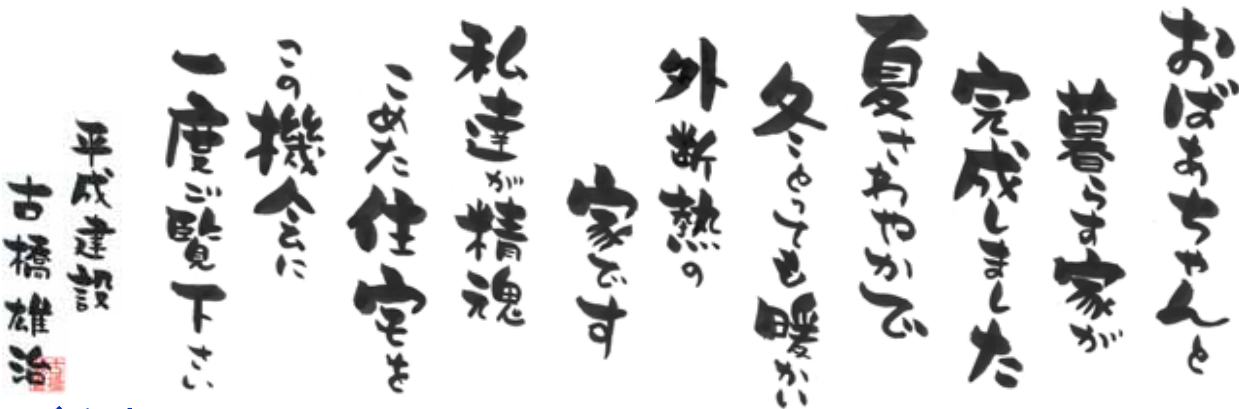 おばあちゃんと
暮らす家が
完成しました
夏さわやかで
冬とっても暖かい
外断熱の
家です
私達が精魂
こめた住宅を
この機会に
一度ご覧下さい
平成建設
古橋雄治